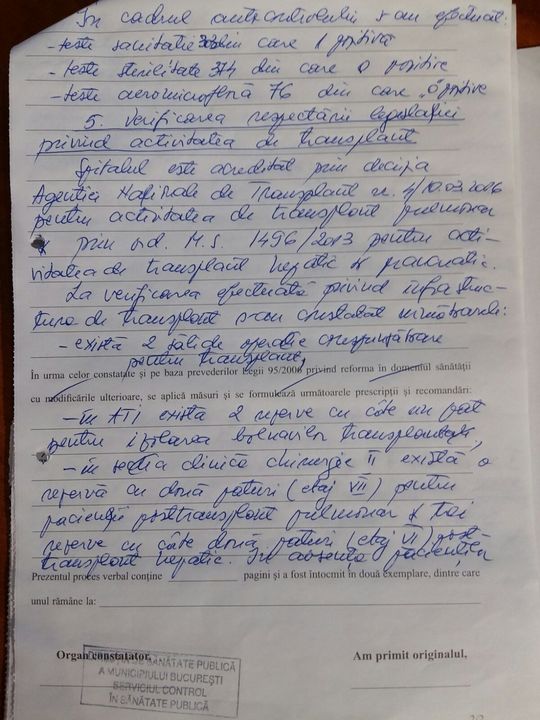 În cadrul autocontrolului s-au efectuat:
- teste sanitație din care 1 pozitivă
- teste sterilitate 374 din care 0 pozitive
- teste aeromicrofloră 76 din care "0" pozitive
5. Verificarea respectării legislației
privind activitatea de transplant
Spitalul este acreditat prin decizia
Agenției Naționale de Transplant nr. 4/10.03.2016
pentru activitatea de transplant pulmonar
prin ord. M.S. 1496/2013 pentru acti-
vitatea de transplant hepatic pancreatic.
La verificarea efectuată privind infrastruc-
tura de transplant s-au constatat următoarele:
- există 2 săli de operație corespunzătoare
pentru transplant,
În urma celor constatate și pe baza prevederilor Legii 95/2006 privind reforma în domeniul sănătății
cu modificările ulterioare, se aplică măsuri și se formulează următoarele prescripții și recomandări:
- în ATI există 2 rezerve cu câte un pat
pentru izolarea bolnavilor transplantați,
- în secția clinică chirurgie II există o
rezervă cu două paturi (etaj VII) pentru
pacienții posttransplant pulmonar și trei
rezerve cu câte două paturi (etaj VI) post
transplant hepatic. În absența pacienților
Prezentul proces verbal conține ____________ pagini și a fost întocmit în două exemplare, dintre care
unul rămâne la: ____________
Organ constatator, Am primit originalul,
DIRECȚIA DE SĂNĂTATE PUBLICĂ
A MUNICIPIULUI BUCUREȘTI
SERVICIUL CONTROL
ÎN SĂNĂTATE PUBLICĂ
2/2